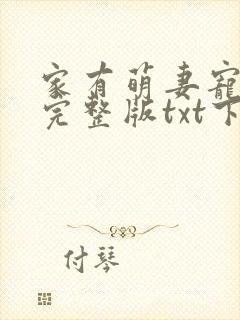 家有萌妻宠
完整版txt下
付琴